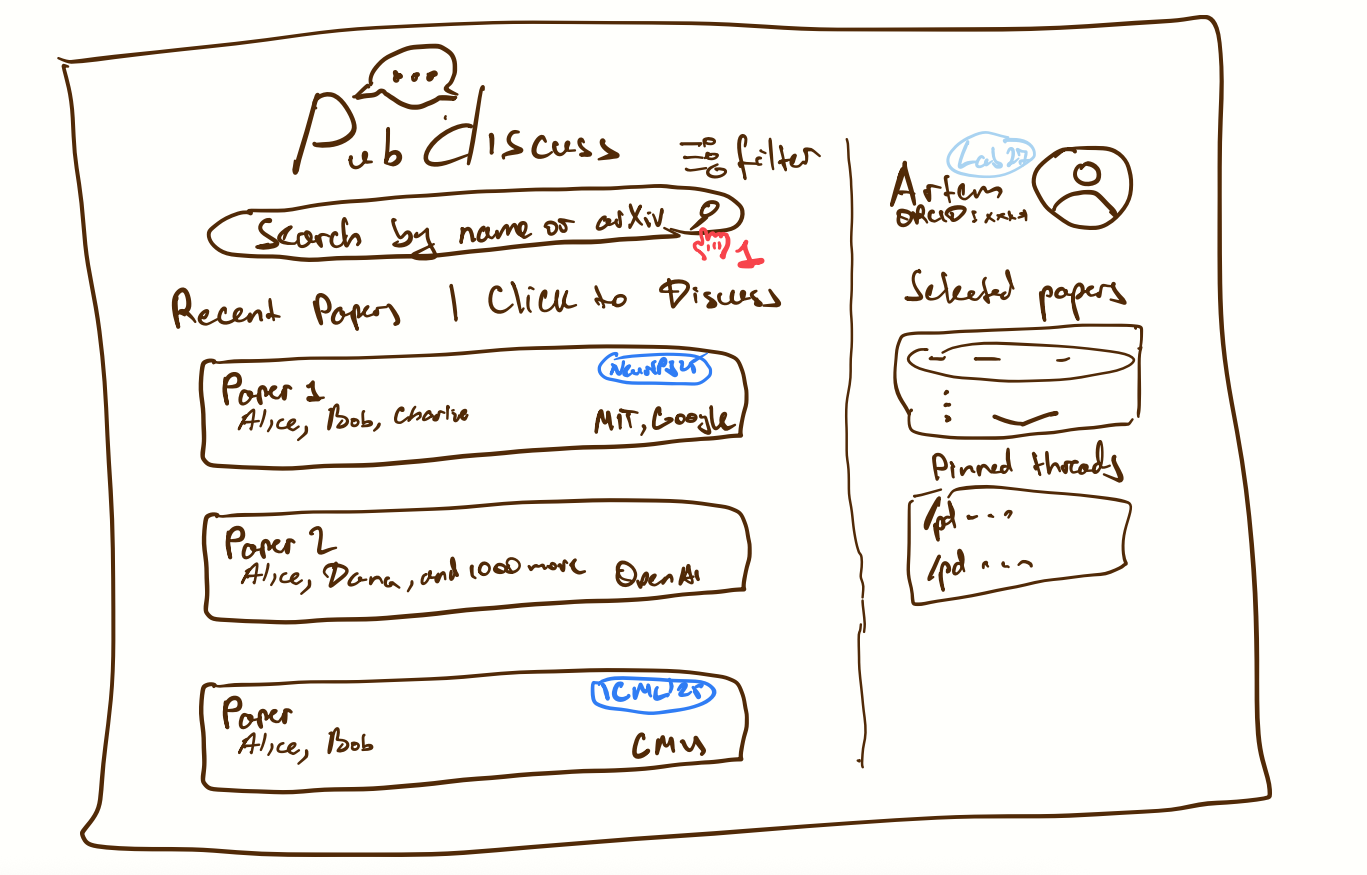 ...
PubDiscuss
filter
Search by name or arXiv
1
Recent Papers | Click to Discuss
Paper 1
NeurIPS25
Alice, Bob, Charlie
MIT, Google
Paper 2
Alice, Dana, and 1000 more
OpenAI
Paper
ICML25
Alice, Bob
CMU
Artem
ORCID: xxxx
Selected papers
Pinned threads
/pd ---
/pd ...